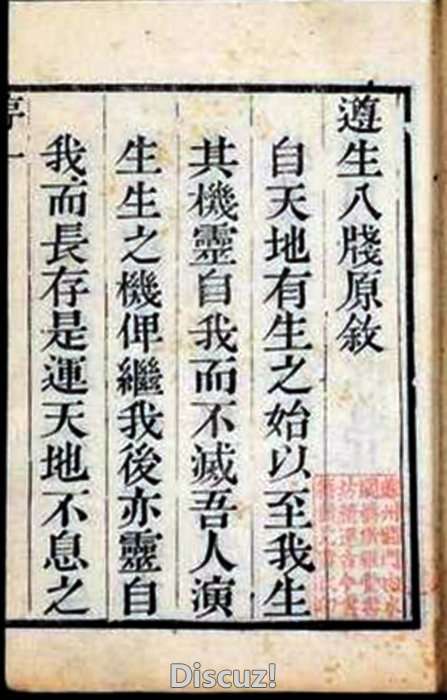 遵生八牋原敘
自天地有生之始以至我生
其機靈自我而不滅吾人演
生生之機俾繼我後亦靈自
我而長存是運天地不息之
序一
Discuz!